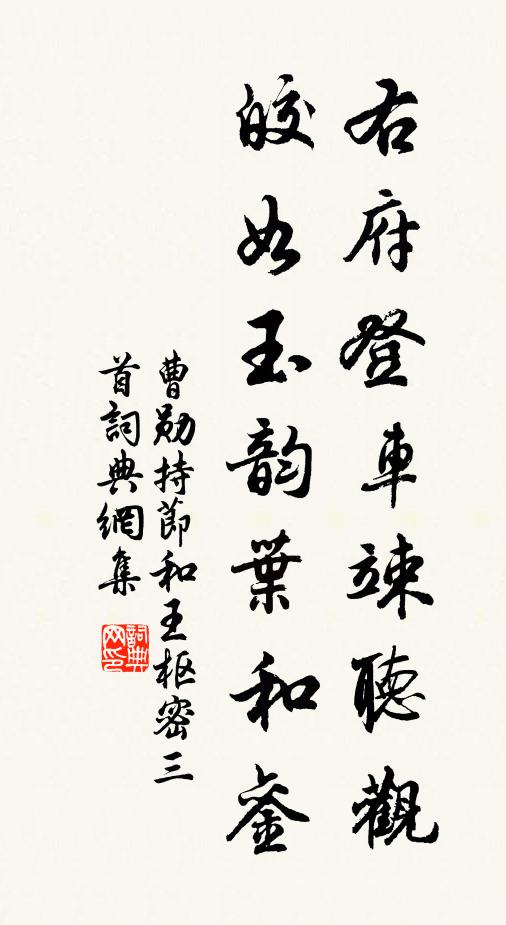 右府登車竦聽觀
皎如玉韵葉和鑾
曹勛持節和王枢密三
首詞典網集
詞典网印